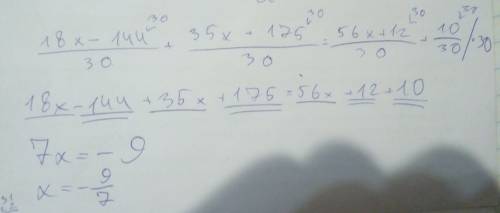 18x-144^30/30 + 35x+175^30/30 = 56x+12^30/30 + 10^30/30 /·30
18x-144+35x+175=56x+12+10
7x=-9
x=-9/7